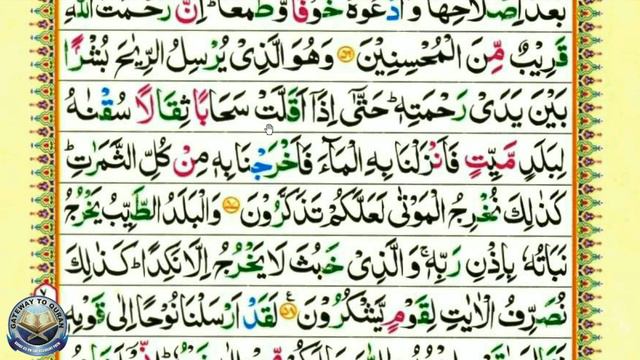 بَعْدَ اِصْلَاحِهَا وَادْعُوْهُ خَوْفًا وَّطَمَعًا ؕ اِنَّ رَحْمَتَ اللّٰهِ
قَرِيْبٌ مِّنَ الْمُحْسِنِيْنَ ﴿۵۶﴾ وَهُوَ الَّذِىْ يُرْسِلُ الرِّيٰحَ بُشْرًۢا
بَيْنَ يَدَىْ رَحْمَتِهٖ ؕ حَتّٰۤى اِذَاۤ اَقَلَّتْ سَحَابًا ثِقَالًا سُقْنٰهُ
لِبَلَدٍ مَّيِّتٍ فَاَنْزَلْنَا بِهِ الْمَآءَ فَاَخْرَجْنَا بِهٖ مِنْ كُلِّ الثَّمَرٰتِ ؕ
كَذٰلِكَ نُخْرِجُ الْمَوْتٰى لَعَلَّكُمْ تَذَكَّرُوْنَ ﴿۵۷﴾ وَالْبَلَدُ الطَّيِّبُ يَخْرُجُ
نَبَاتُهٗ بِاِذْنِ رَبِّهٖ ۚ وَالَّذِىْ خَبُثَ لَا يَخْرُجُ اِلَّا نَكِدًا ؕ كَذٰلِكَ
نُصَرِّفُ الْاٰيٰتِ لِقَوْمٍ يَّشْكُرُوْنَ ﴿۵۸﴾ ع لَقَدْ اَرْسَلْنَا نُوْحًا اِلٰى قَوْمِهٖ
۷
GATEWAY TO QURAN